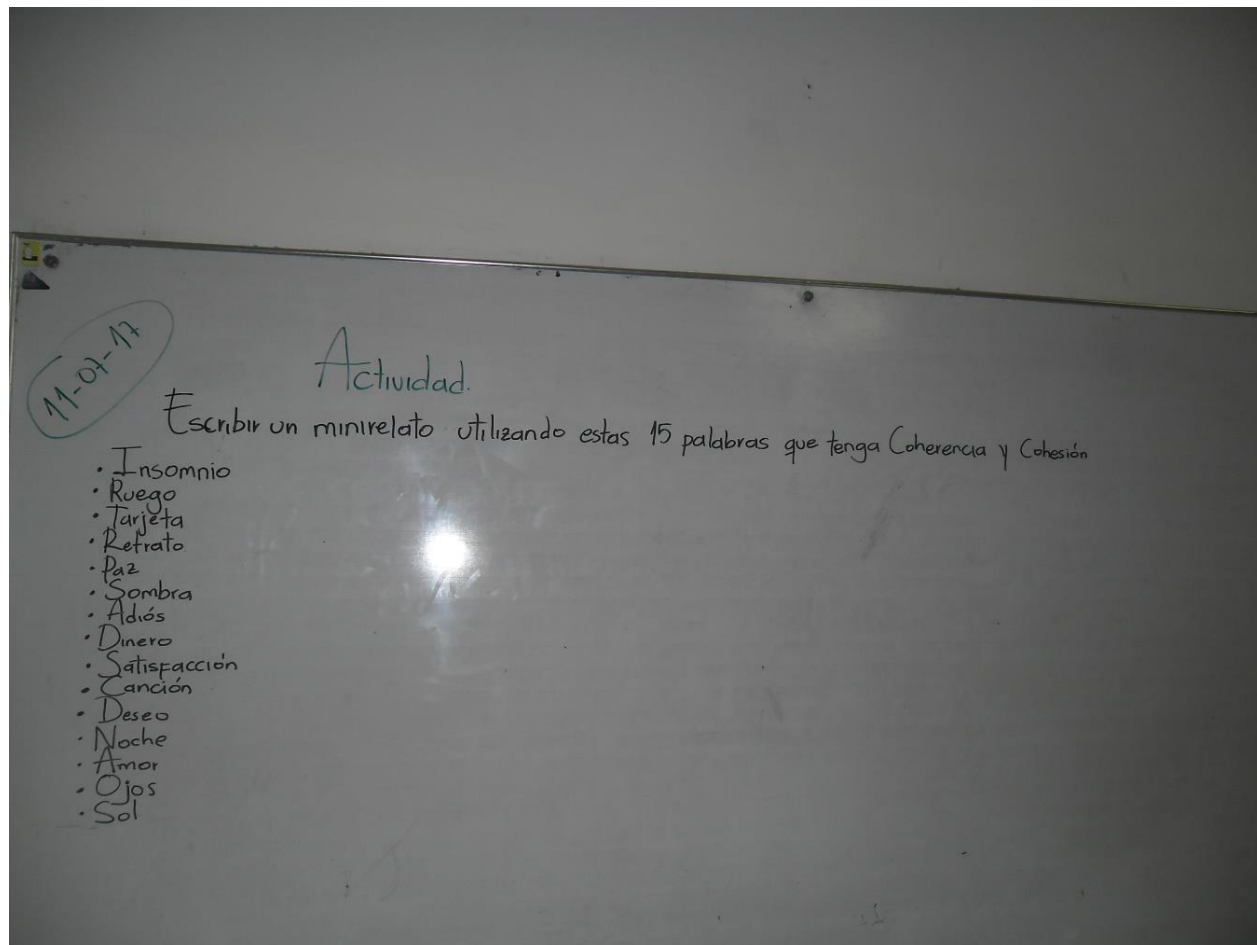 11-07-17
Actividad.
Escribir un minirelato utilizando estas 15 palabras que tenga Coherencia y Cohesión
· Insomnio
· Ruego
· Tarjeta
· Retrato
· Paz
· Sombra
· Adiós
· Dinero
· Satisfacción
· Canción
· Deseo
· Noche
· Amor
· Ojos
· Sol